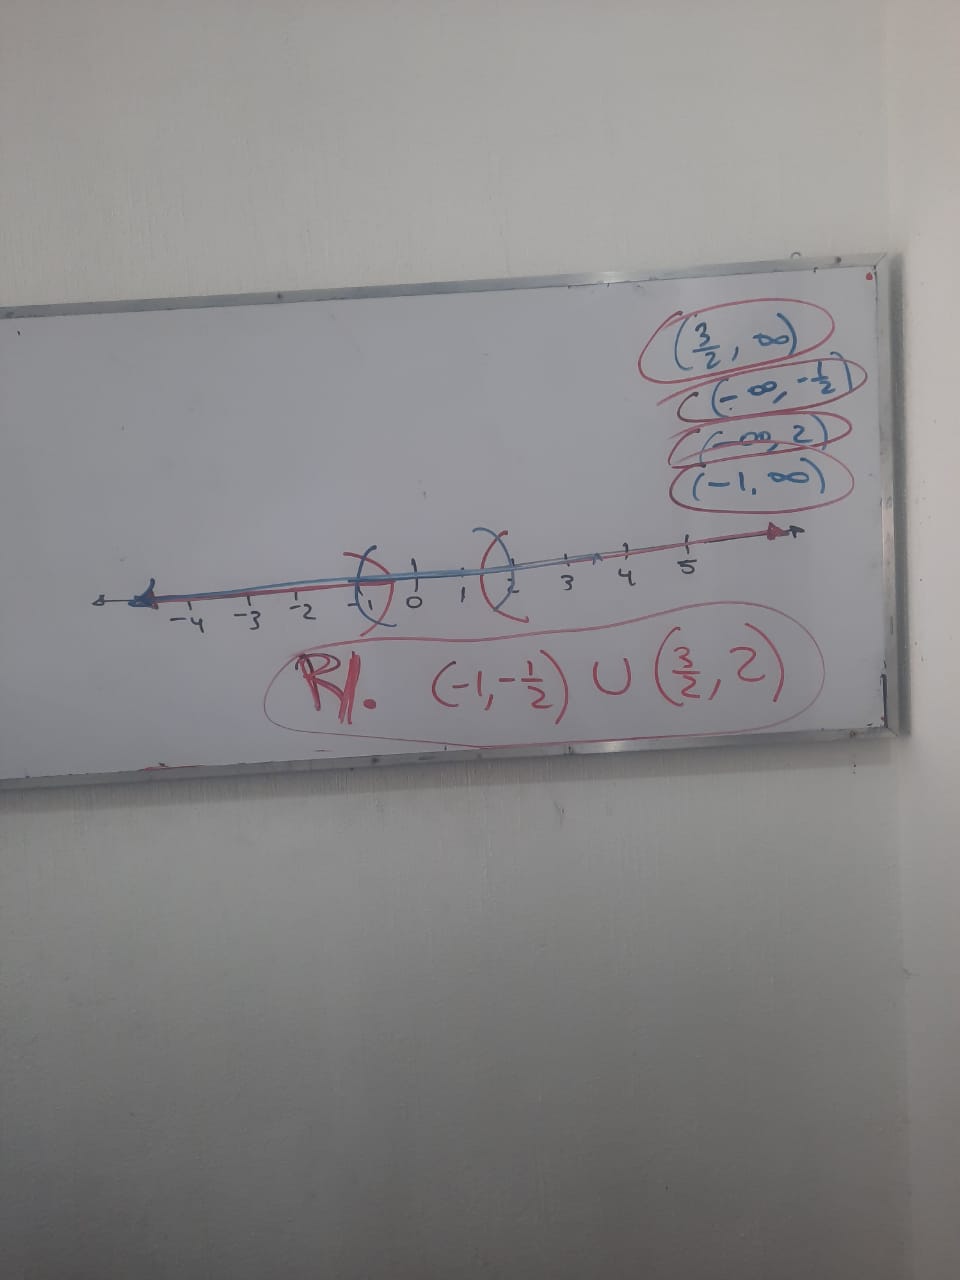 (3/2, ∞)
(-∞, -1/2)
(-∞, 2)
(-1, ∞)
-4 -3 -2 -1 0 1 2 3 4 5
R/. (-1, -1/2) ∪ (3/2, 2)